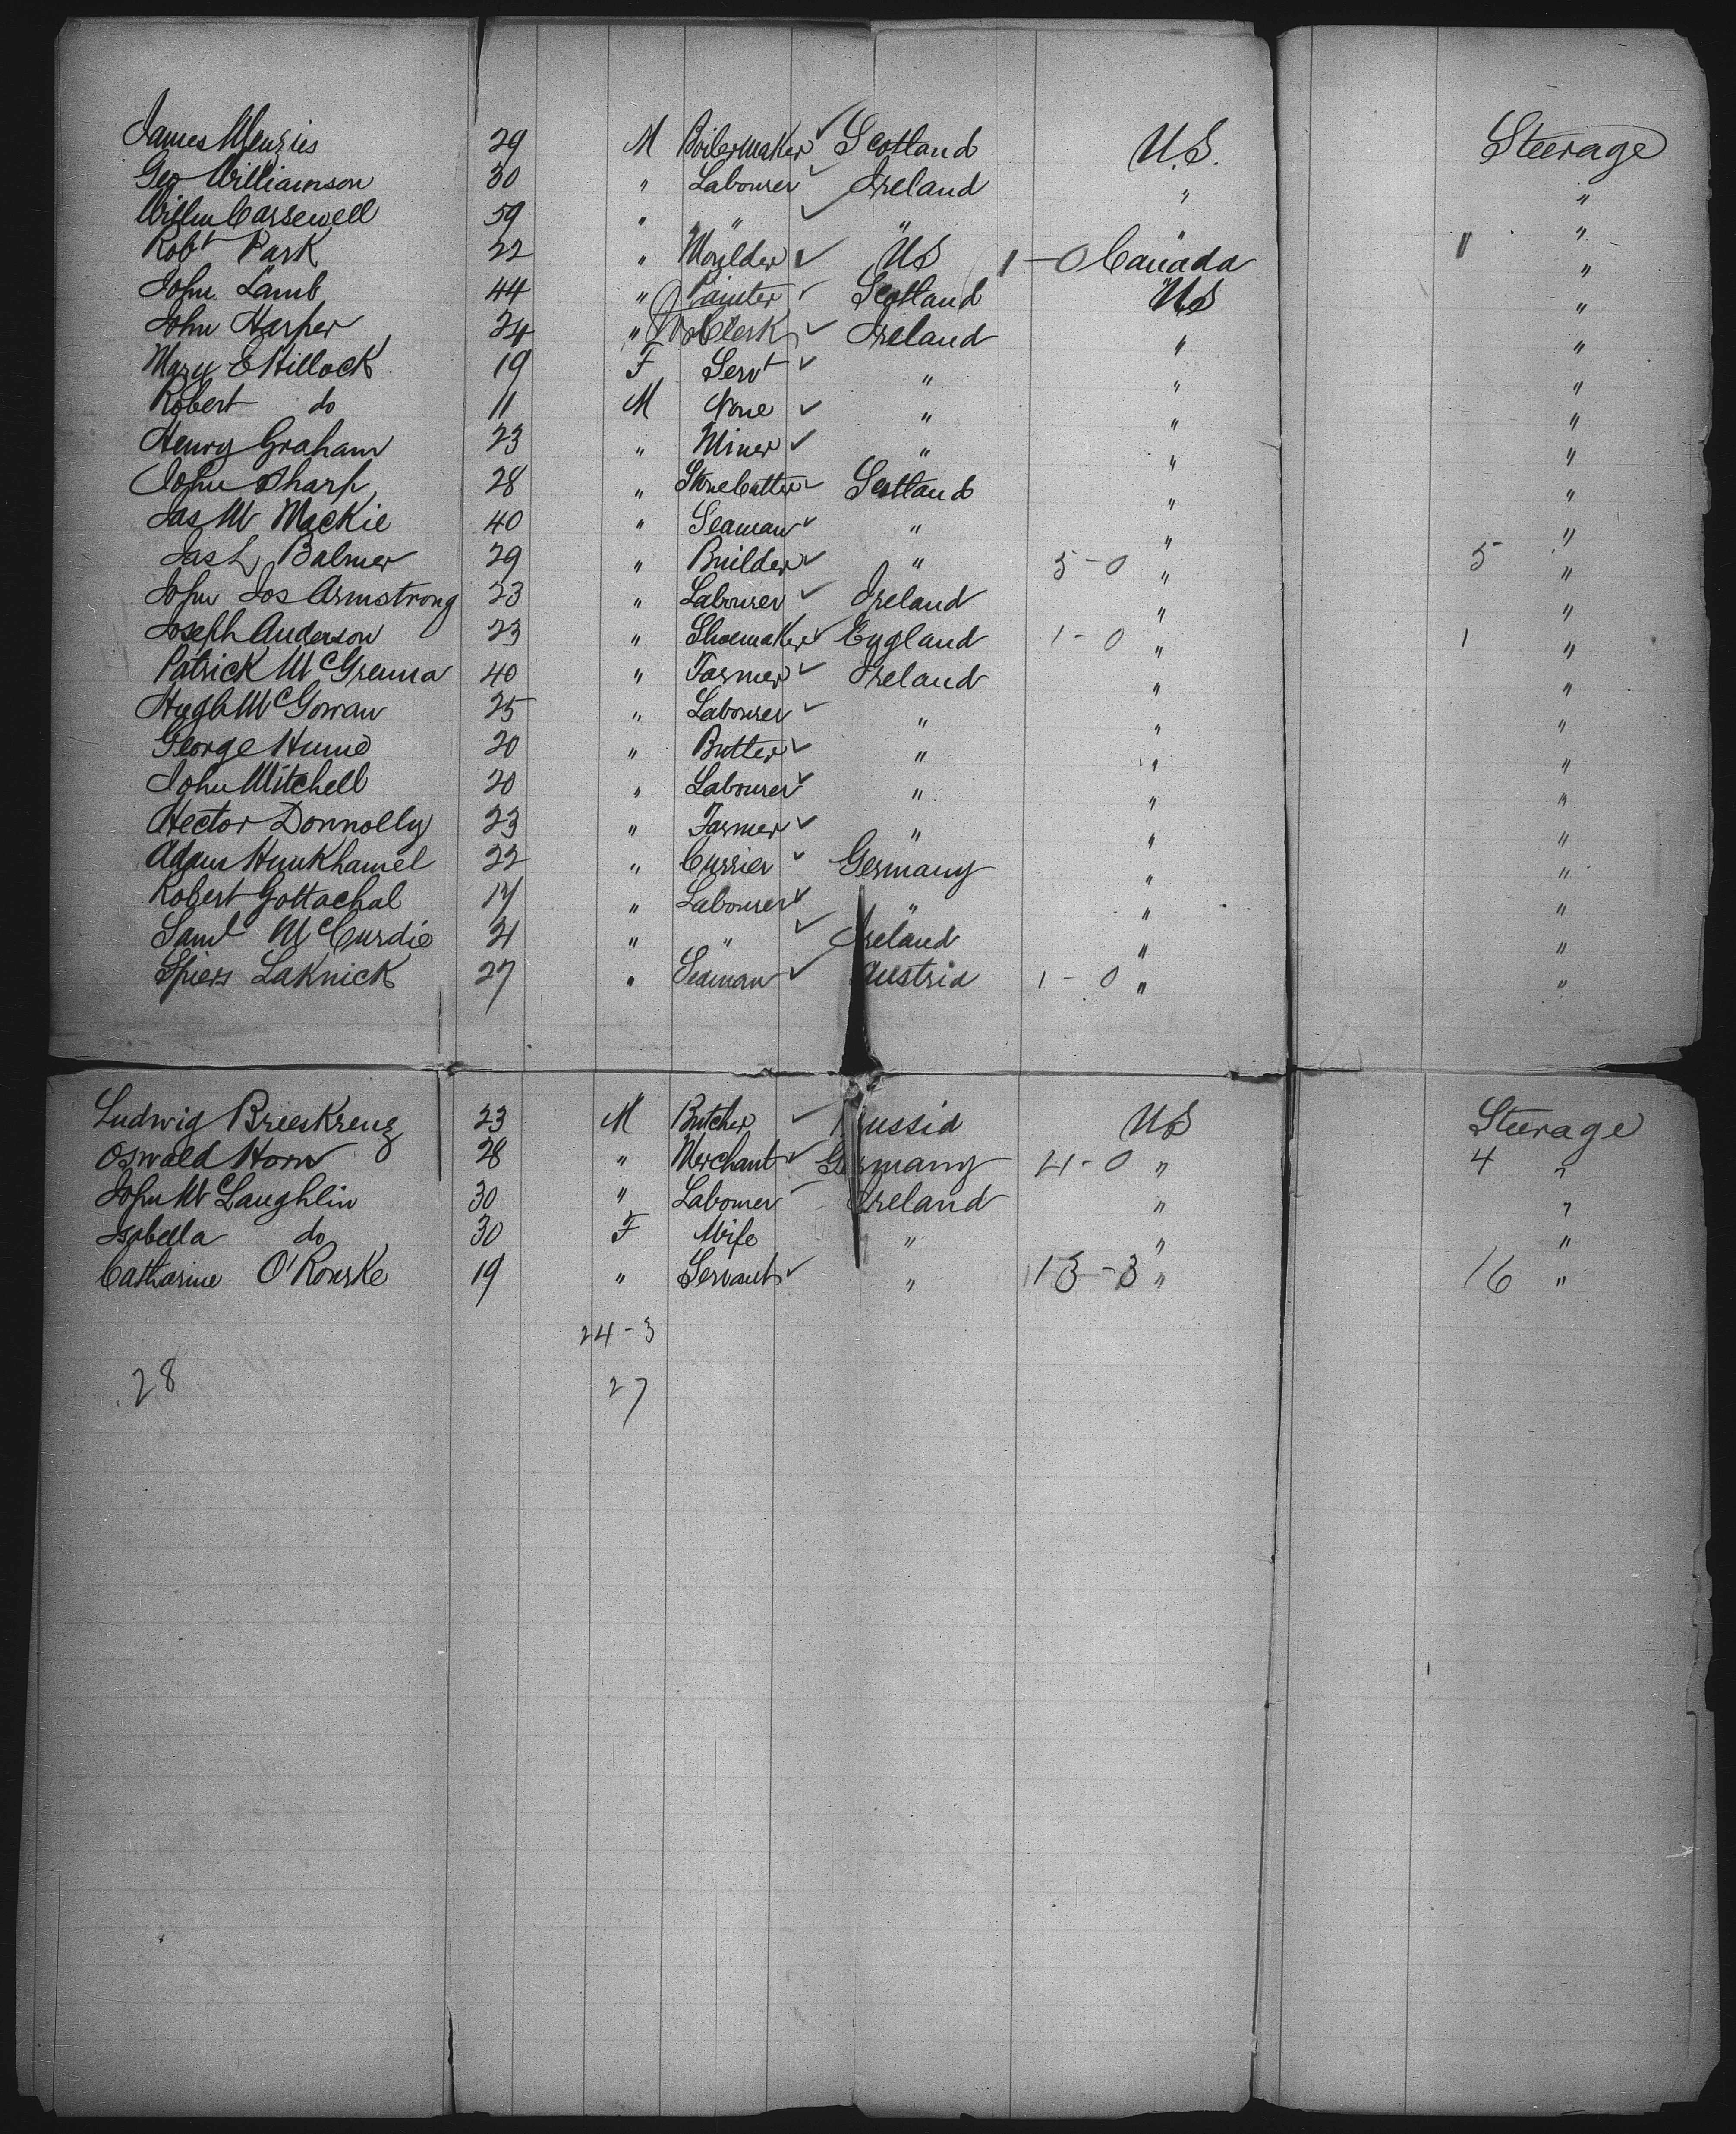 James Menzies 29 M Boilermaker ✓ Scotland U.S. Steerage
Geo Williamson 30 " Labourer ✓ Ireland " "
Willm Carsewell 59 " " ✓ " " "
Robt Park 22 " Moulder ✓ US 1-0 Canada 1 "
John Lamb 44 " Painter ✓ Scotland US "
John Harper 24 " Clerk ✓ Ireland " "
Mary E Hillock 19 F Servt ✓ " " "
Robert do 11 M None ✓ " " "
Henry Graham 23 " Miner ✓ " " "
John Sharp 28 " StoneCutter ✓ Scotland " "
Jas M Mackie 40 " Seaman ✓ " " "
Jas L Balmer 29 " Builder ✓ " 5-0 " 5 "
John Jos Armstrong 23 " Labourer ✓ Ireland " "
Joseph Anderson 23 " Shoemaker ✓ England 1-0 " 1 "
Patrick McGrenna 40 " Farmer ✓ Ireland " "
Hugh McGowan 25 " Labourer ✓ " " "
George Hume 20 " Butler ✓ " " "
John Mitchell 20 " Labourer ✓ " " "
Hector Donnolly 23 " Farmer ✓ " " "
Adam Hunkhamel 22 " Currier ✓ Germany " "
Robert Gottachal 17 " Labourer ✓ " " "
Saml McCurdie 21 " " ✓ Ireland " "
Spiers Laknick 27 " Seaman ✓ Austria 1-0 " "
Ludwig 23 M Butcher ✓ Russia US Steerage
Oswald Horn 28 " Merchant ✓ Germany 4-0 " 4 "
John McLaughlin 30 " Labourer Ireland " "
Isabella do 30 F Wife " " "
Catharine O'Rourke 19 " Servant ✓ " 13-3 " 16 "
24-3
28 27